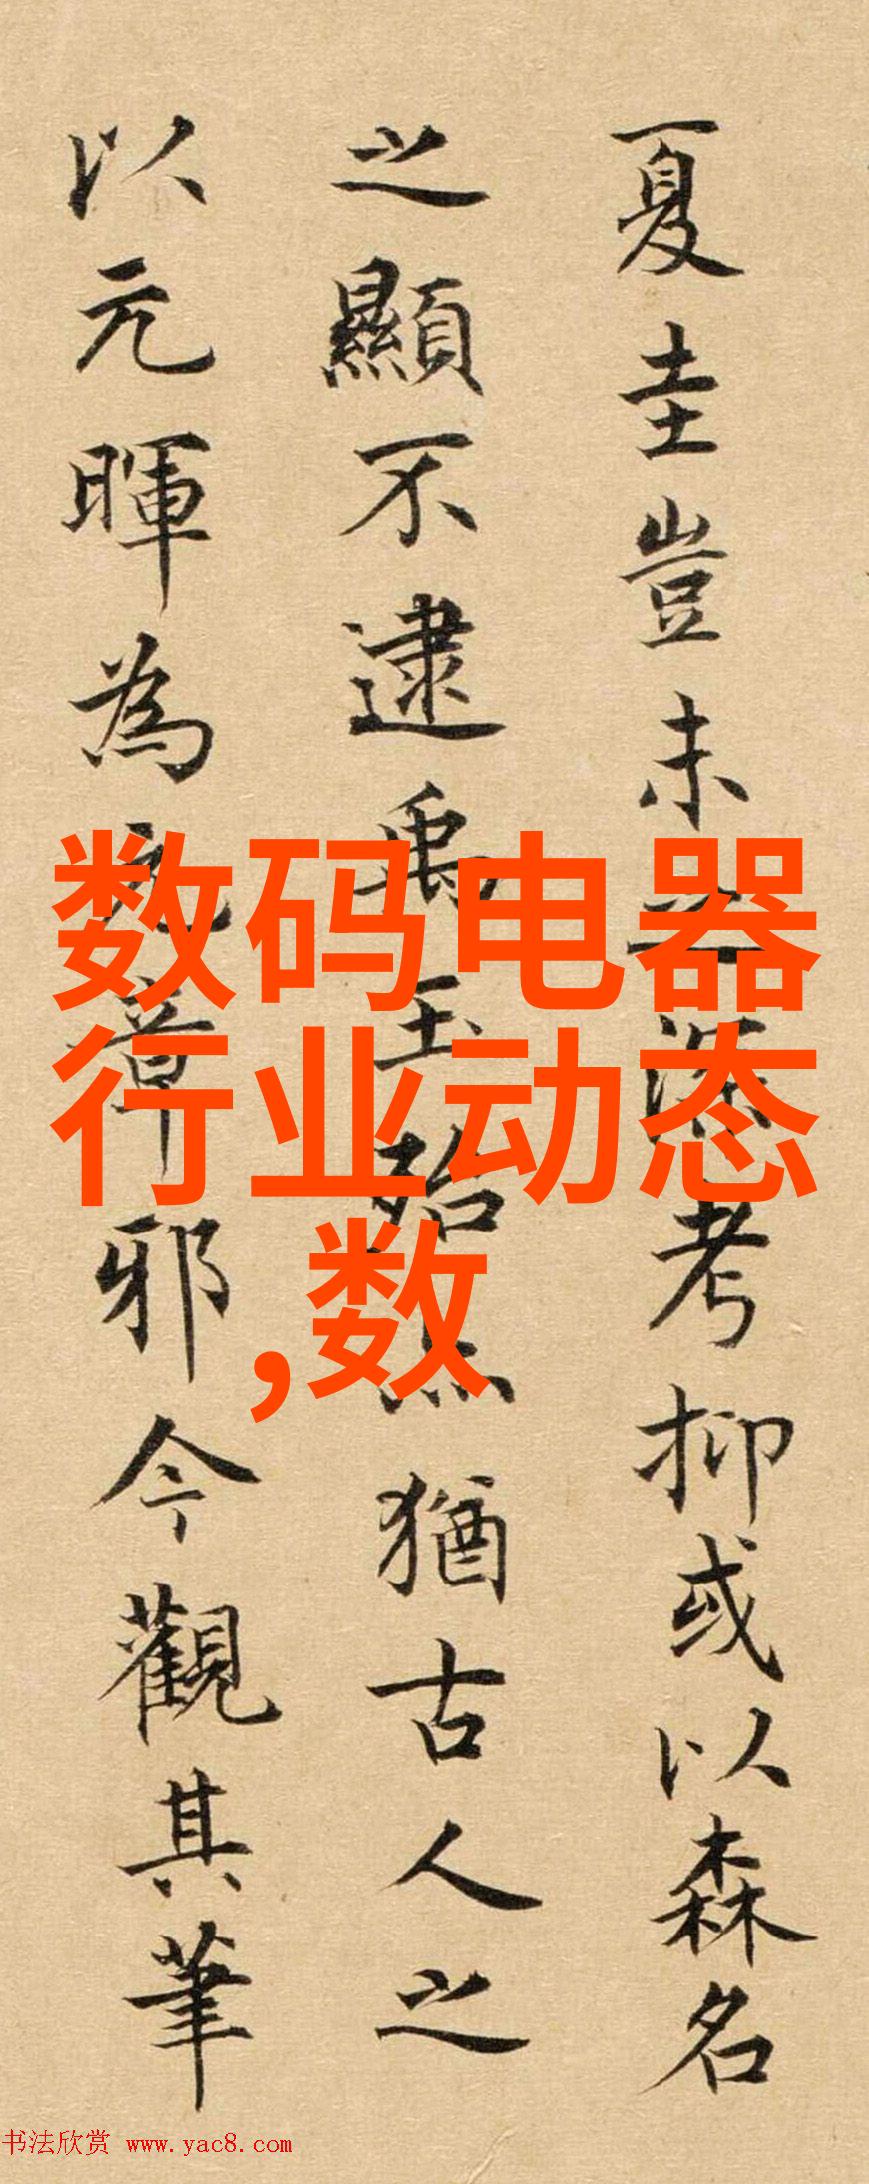 夏圭豈未之深考抑或以森名
之顯不逮禹玉殆亦猶古人之
以元暉為元章邪今觀其筆
数码电器
行业动态
,数
书法欣赏 www.yac8.com